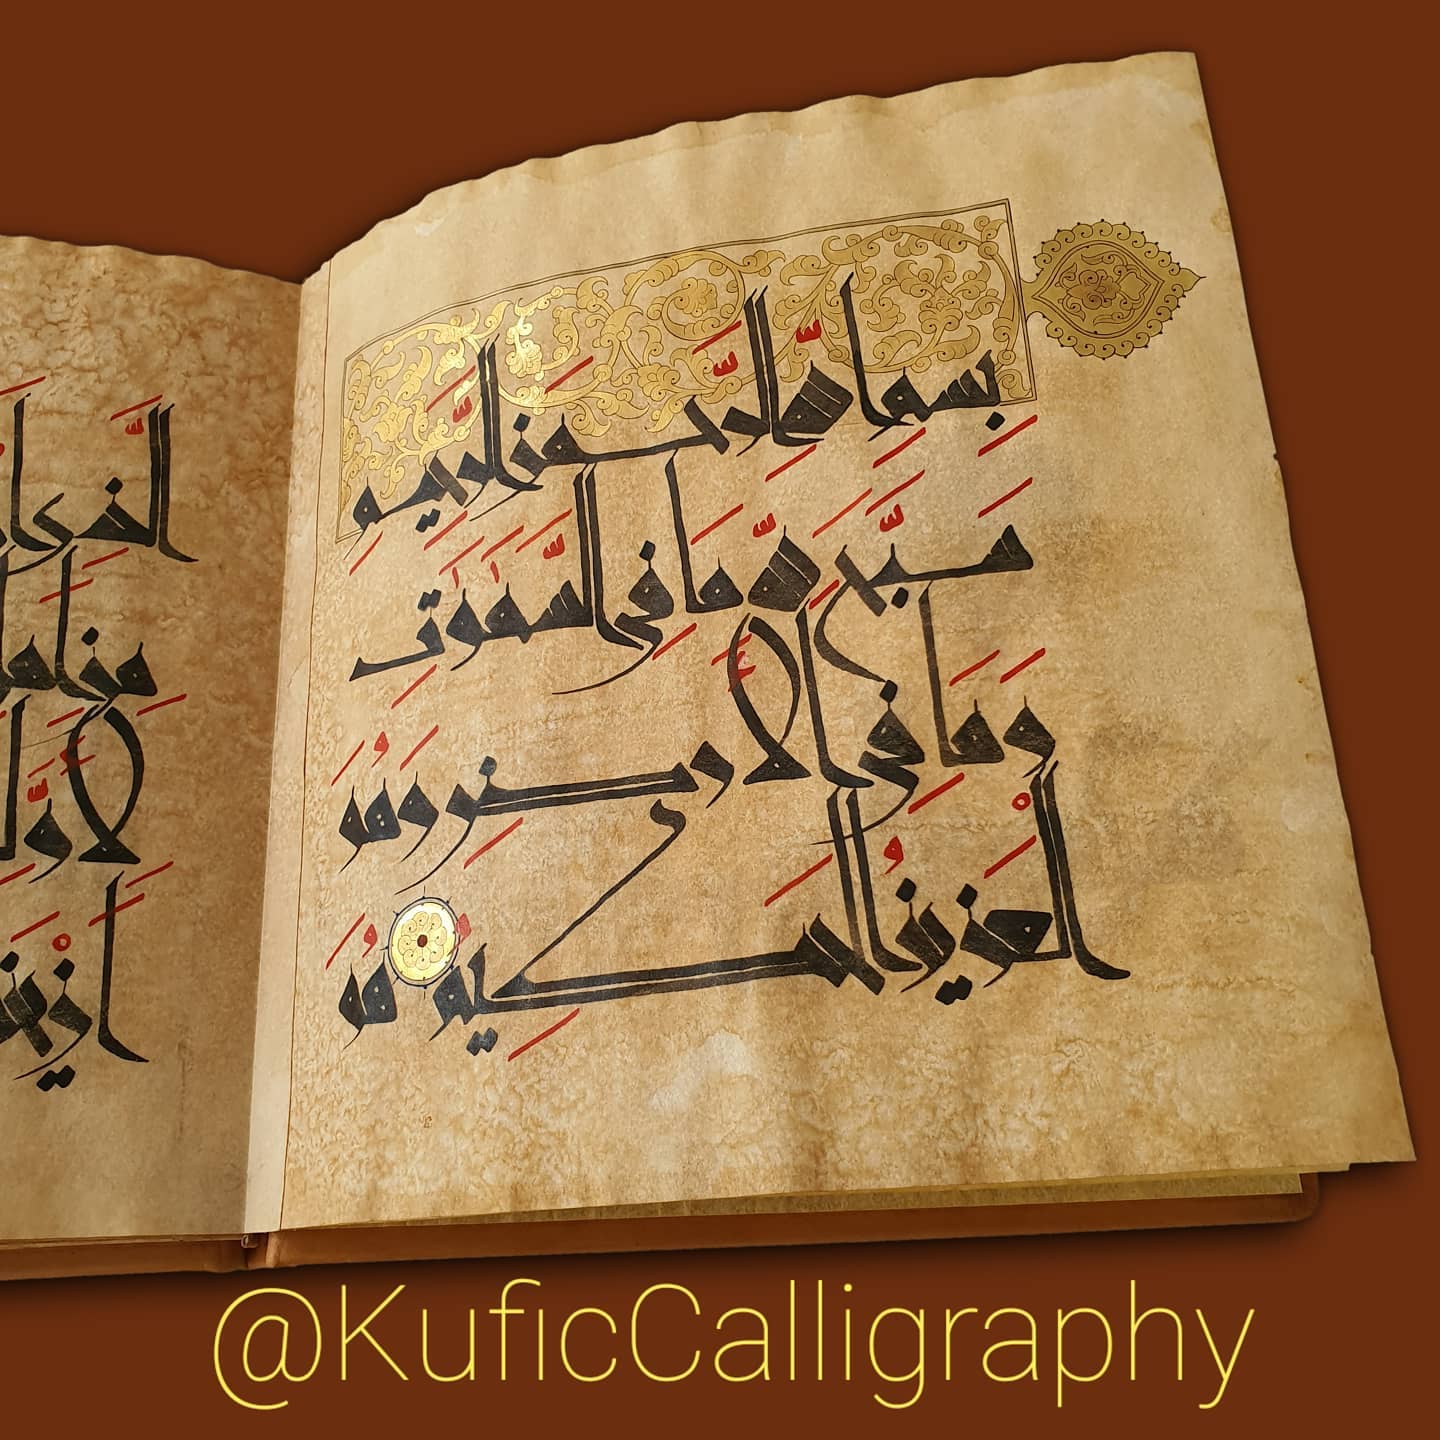 بِسْمِ اللَّهِ الرَّحْمَنِ الرَّحِيمِ
سَبَّحَ لِلَّهِ مَا فِي السَّمَوَتِ
وَمَا فِي الْأَرْضِ وَهُوَ
الْعَزِيزُ الْحَكِيمُ هُوَ
الَّذِي
مِنْ أَهْلِ
لِأَوَّلِ
أَنْ
@KuficCalligraphy